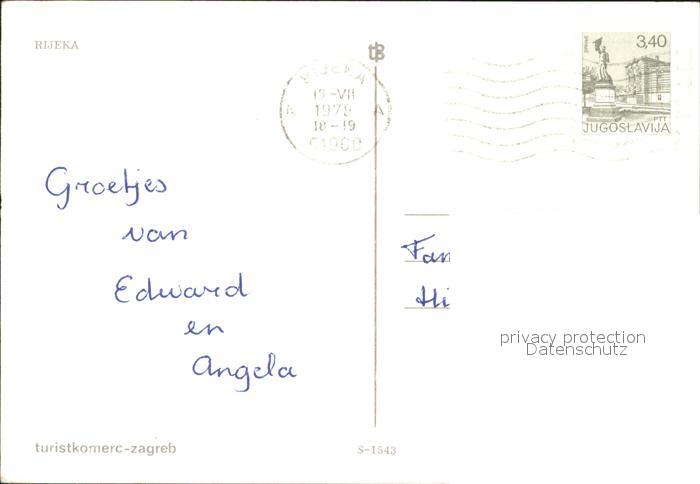 RIJEKA
tB
RIJEKA
19-VII
A 1978 A
18-19
51000
3,40
PTT
JUGOSLAVIJA
Groetjes
van
Edward
en
Angela
Fam
Hi
privacy protection
Datenschutz
turistkomerc-zagreb
S-1543